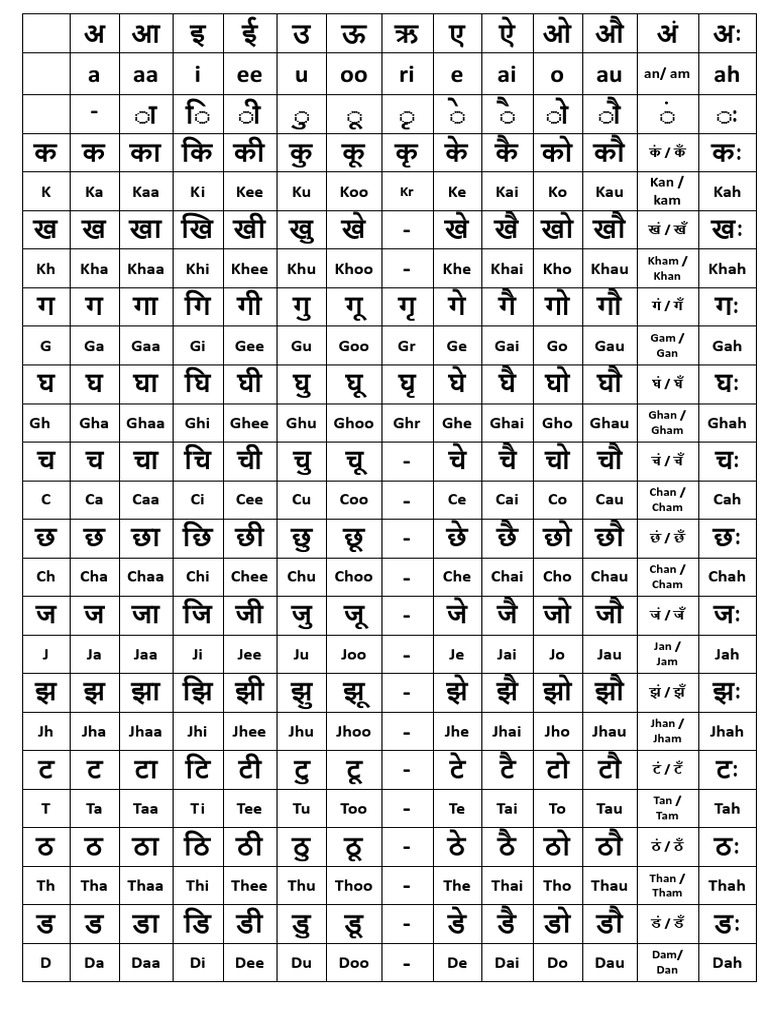 अ आ इ ई उ ऊ ऋ ए ऐ ओ औ अं अः
a aa i ee u oo ri e ai o au an/ am ah
- ा ि ी ु ू ृ े ै ो ौ ं ः
क क का कि की कु कू कृ के कै को कौ कं / कँ कः
K Ka Kaa Ki Kee Ku Koo Kr Ke Kai Ko Kau Kan / kam Kah
ख ख खा खि खी खु खे - खे खै खो खौ खं / खँ खः
Kh Kha Khaa Khi Khee Khu Khoo - Khe Khai Kho Khau Kham / Khan Khah
ग ग गा गि गी गु गू गृ गे गै गो गौ गं / गँ गः
G Ga Gaa Gi Gee Gu Goo Gr Ge Gai Go Gau Gam / Gan Gah
घ घ घा घि घी घु घू घृ घे घै घो घौ घं / घँ घः
Gh Gha Ghaa Ghi Ghee Ghu Ghoo Ghr Ghe Ghai Gho Ghau Ghan / Gham Ghah
च च चा चि ची चु चू - चे चै चो चौ चं / चँ चः
C Ca Caa Ci Cee Cu Coo - Ce Cai Co Cau Chan / Cham Cah
छ छ छा छि छी छु छू - छे छै छो छौ छं / छँ छः
Ch Cha Chaa Chi Chee Chu Choo - Che Chai Cho Chau Chan / Cham Chah
ज ज जा जि जी जु जू - जे जै जो जौ जं / जँ जः
J Ja Jaa Ji Jee Ju Joo - Je Jai Jo Jau Jan / Jam Jah
झ झ झा झि झी झु झू - झे झै झो झौ झं / झँ झः
Jh Jha Jhaa Jhi Jhee Jhu Jhoo - Jhe Jhai Jho Jhau Jhan / Jham Jhah
ट ट टा टि टी टु टू - टे टै टो टौ टं / टँ टः
T Ta Taa Ti Tee Tu Too - Te Tai To Tau Tan / Tam Tah
ठ ठ ठा ठि ठी ठु ठू - ठे ठै ठो ठौ ठं / ठँ ठः
Th Tha Thaa Thi Thee Thu Thoo - The Thai Tho Thau Than / Tham Thah
ड ड डा डि डी डु डू - डे डै डो डौ डं / डँ डः
D Da Daa Di Dee Du Doo - De Dai Do Dau Dam/ Dan Dah